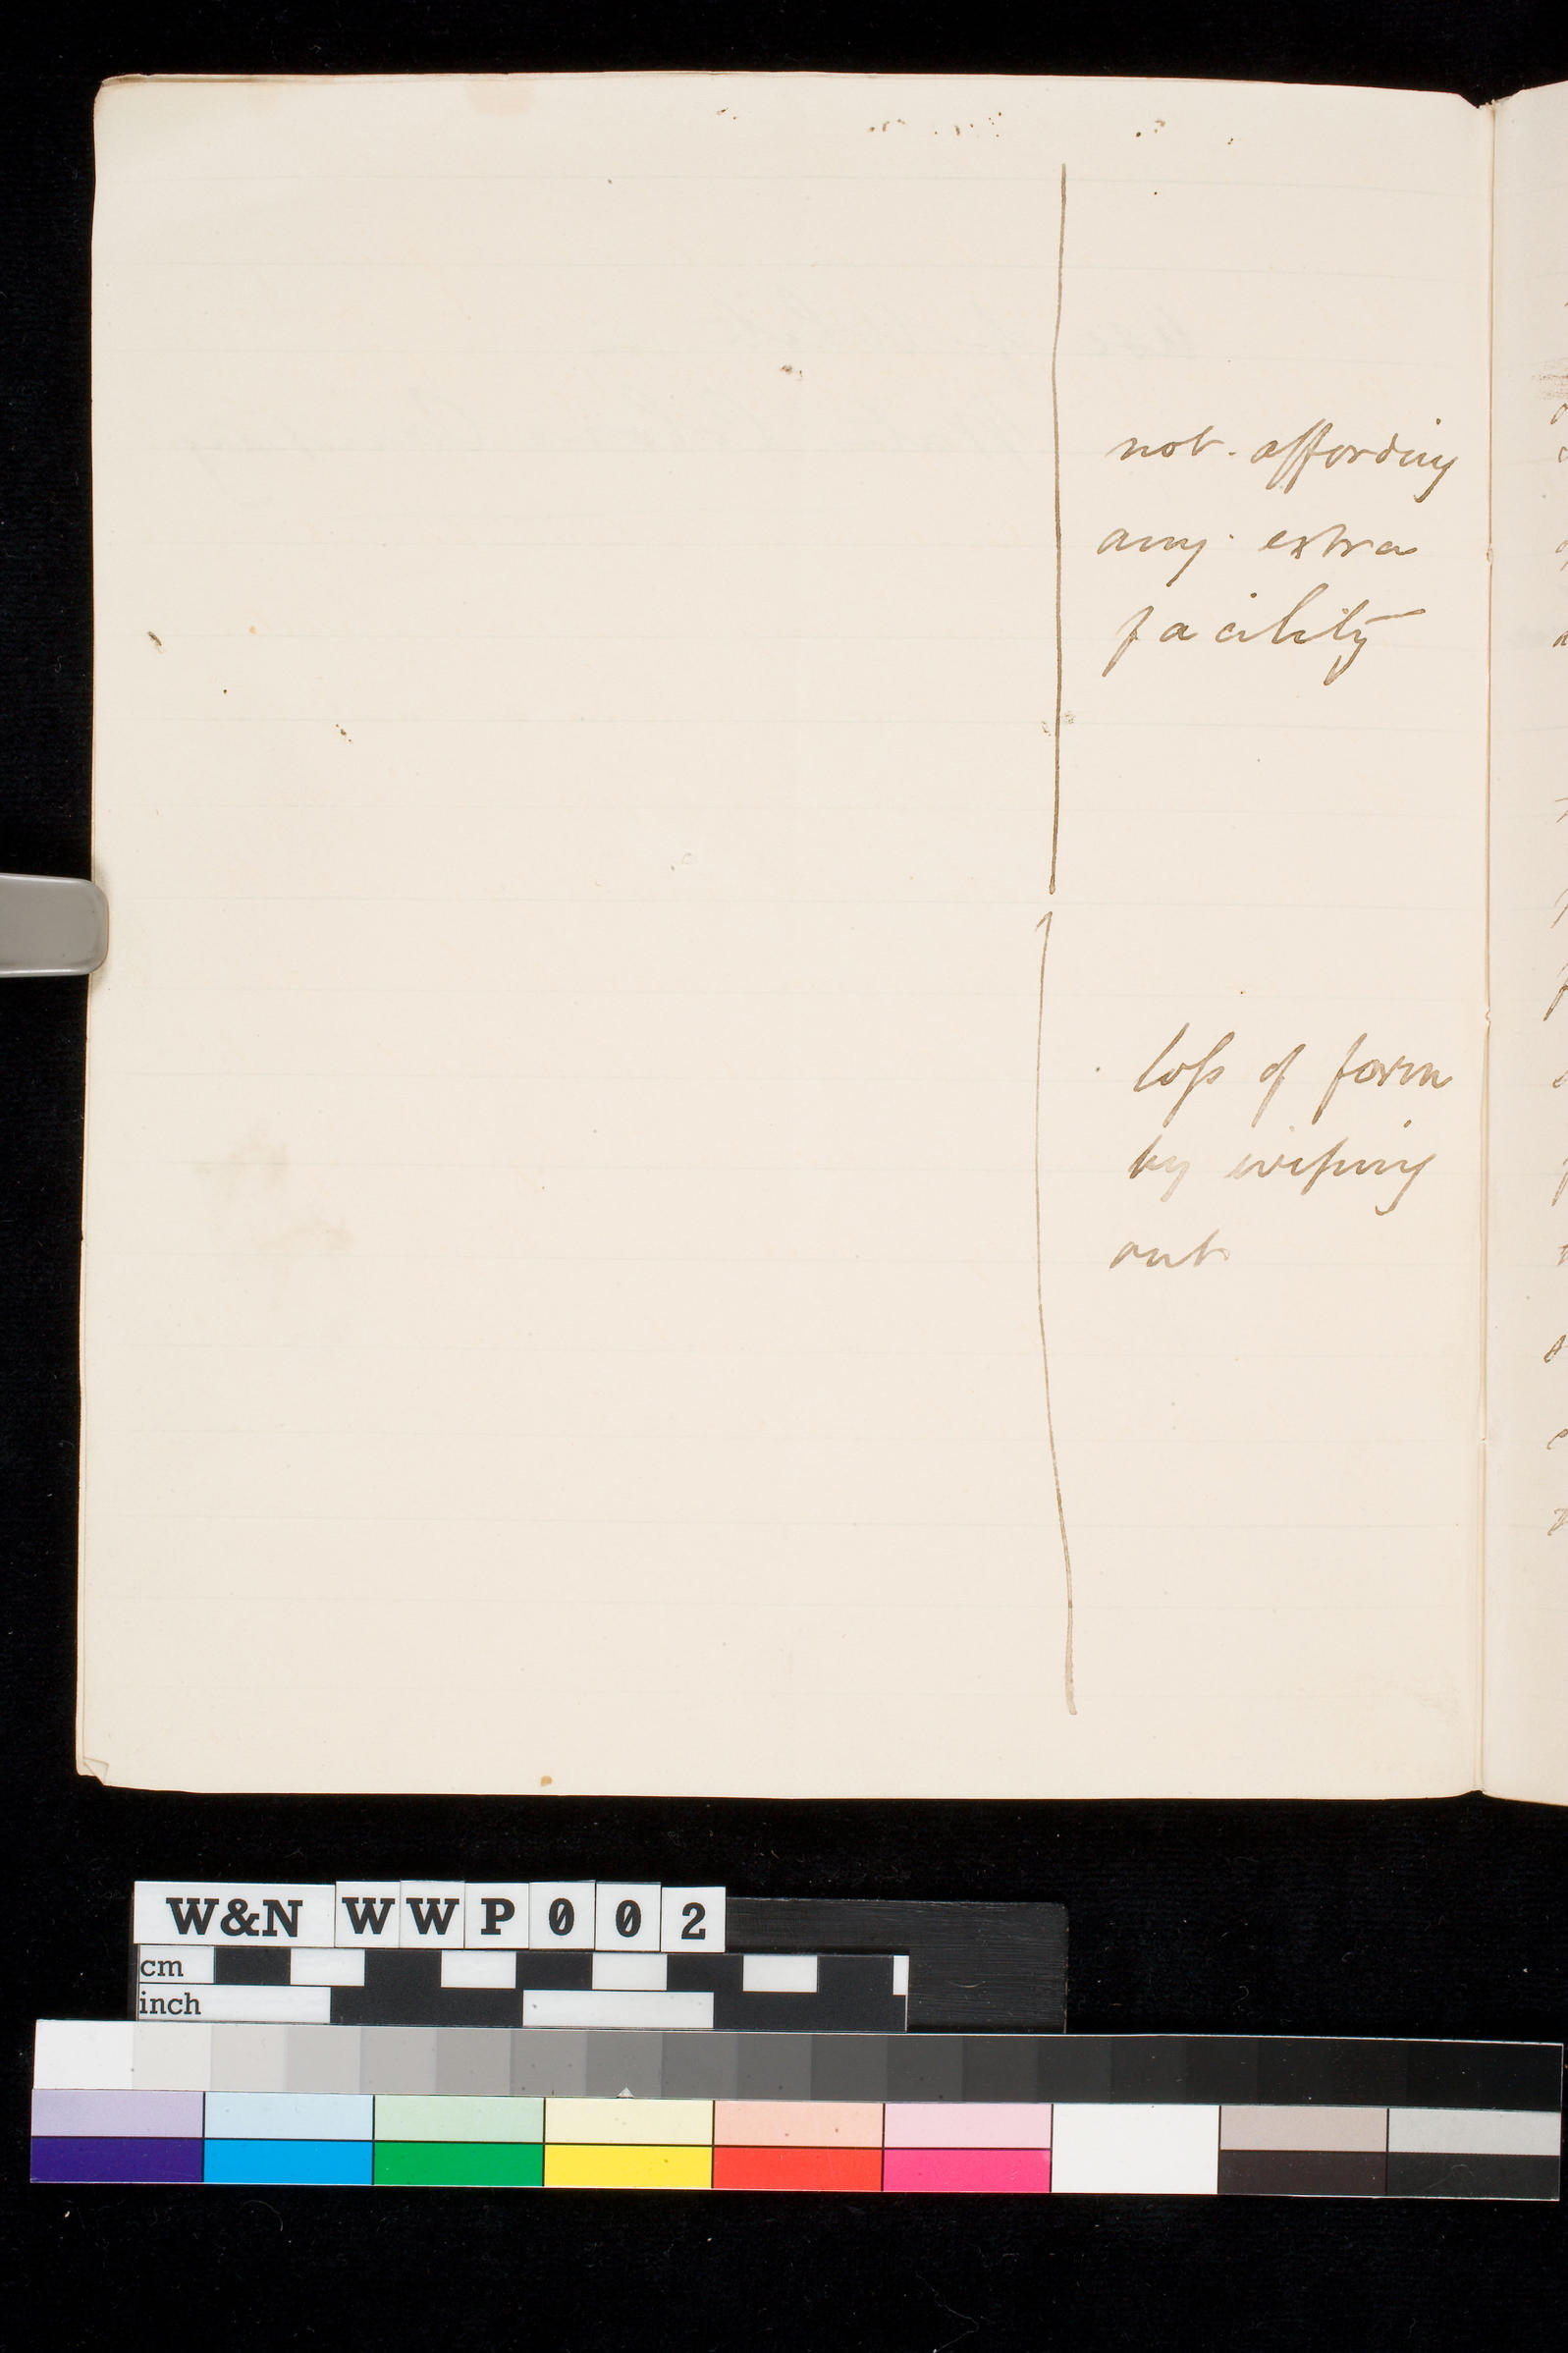 not affording
any extra
facility
loſs of form
by wiping
out
W&N WWP002
cm
inch